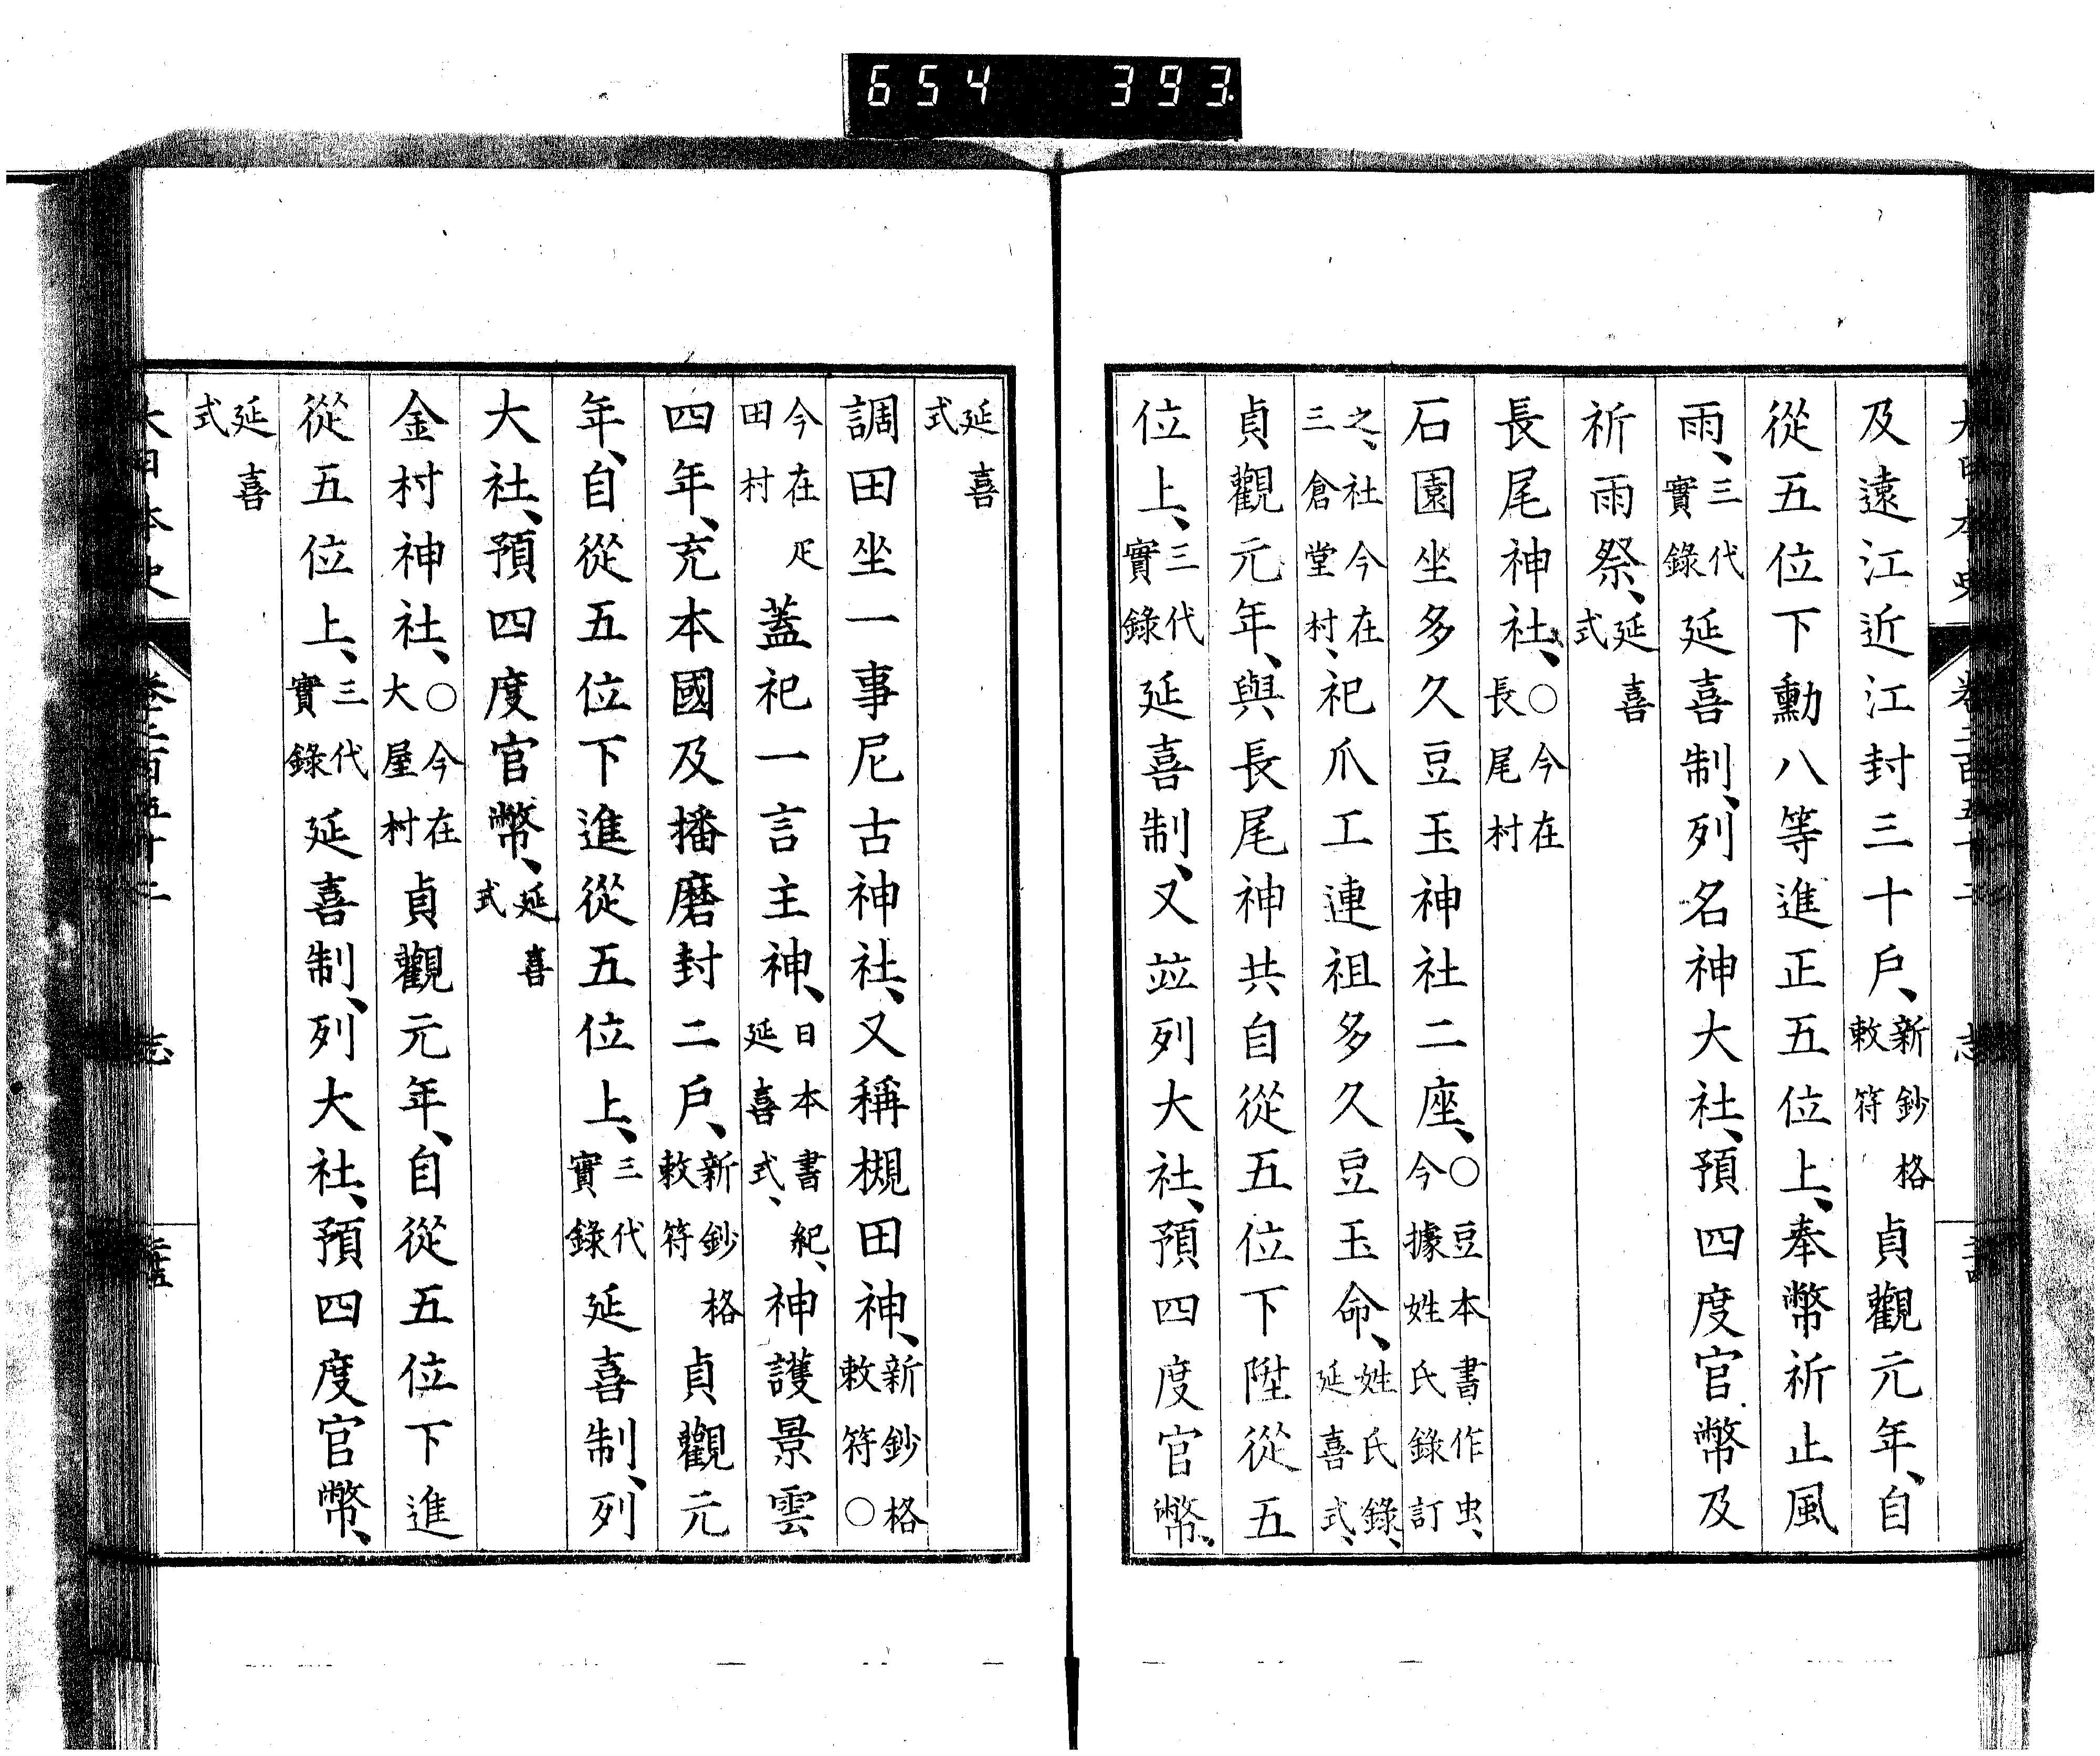 654 393.
大日本史 卷二百五十二 志
及遠江近江封三十戶、新鈔格敕符貞觀元年、自
從五位下勳八等進正五位上、奉幣祈止風
雨、三代實錄延喜制、列名神大社、預四度官幣及
祈雨祭、延喜式
長尾神社、○今在長尾村
石園坐多久豆玉神社二座、○豆本書作虫、今據姓氏錄訂
之、社今在三倉堂村、祀爪工連祖多久豆玉命、姓氏錄、延喜式、
貞觀元年、與長尾神共自從五位下陞從五
位上、三代實錄延喜制、又竝列大社、預四度官幣、
延喜式
調田坐一事尼古神社、又稱槻田神、新鈔格敕符○
今在疋田村蓋祀一言主神、日本書紀、延喜式、神護景雲
四年、充本國及播磨封二戶、新鈔格敕符貞觀元
年、自從五位下進從五位上、三代實錄延喜制、列
大社、預四度官幣、延喜式
金村神社、○今在大屋村貞觀元年、自從五位下進
從五位上、三代實錄延喜制、列大社、預四度官幣、
延喜式
大日本史 卷二百五十二 志